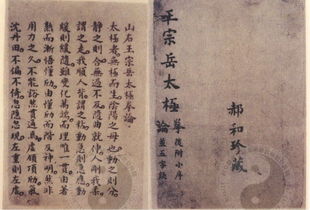 郝和珍藏
王宗岳太極拳論
後附小序
並五字訣
山右王宗岳太極拳論
太極者無極而生陰陽之母也動之則分
靜之則合無過不及隨曲就伸人剛我柔
謂之走我順人背謂之粘動急則急應動
緩則緩隨雖變化萬端而理唯一貫由着
熟而漸悟懂勁由懂勁而階及神明然非
用力之久不能豁然貫通焉虛領頂勁氣
沉丹田不偏不倚忽隱忽現左重則左虛